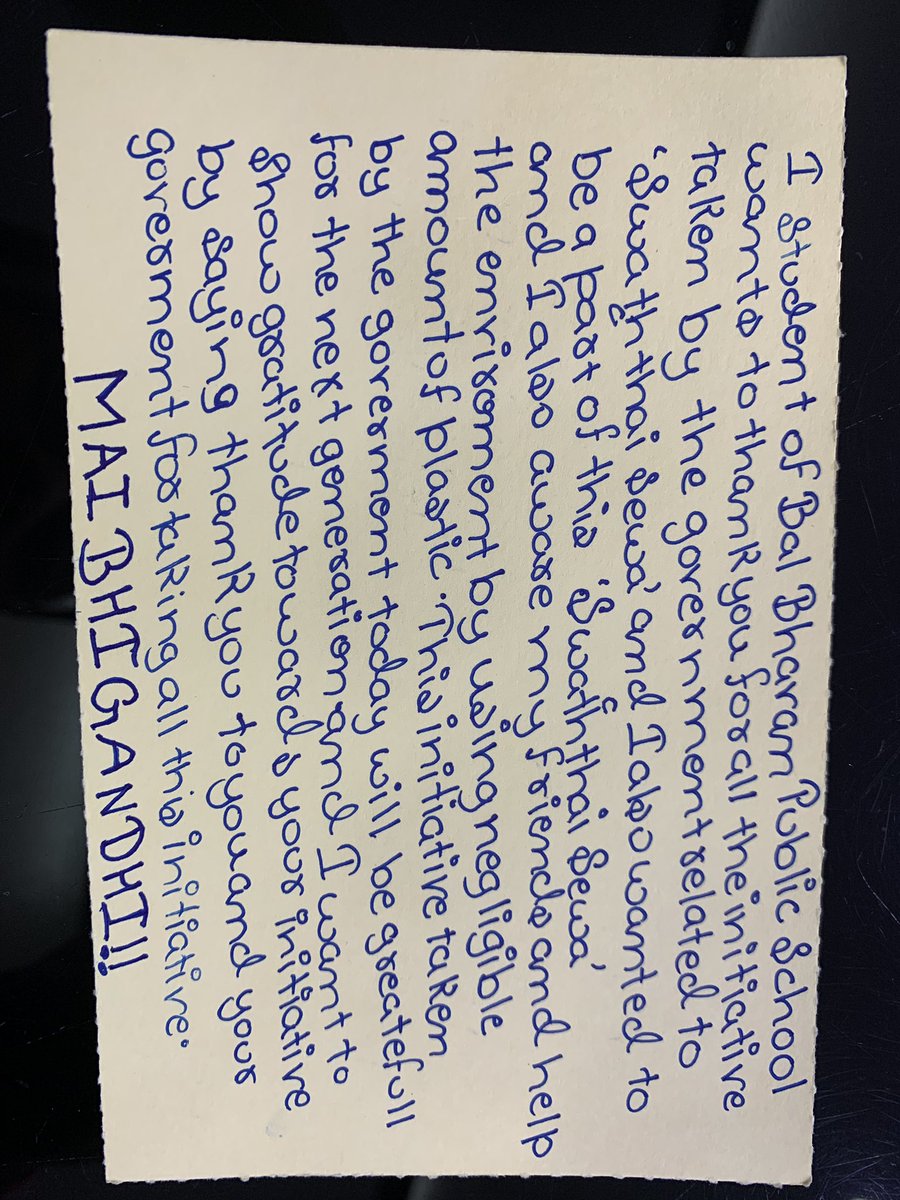 I student of Bal Bharam Public School
wants to thank you for all the initiative
taken by the government related to
'Swathta hi sewa' and I also wanted to
be a part of this 'Swathta hi sewa'
and I also aware my friends and help
the enviroment by using negligible
ammount of plastic. This initiative taken
by the goverment today will be greatefull
for the next generation and I want to
show gratitude towards your initiative
by saying thank you to you and your
goverment for taking all this initiative.
MAI BHI GANDHI!!